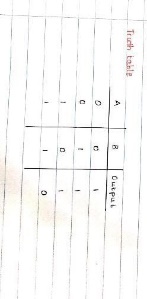 Truth table
A B Output
0 0 1
0 1 1
1 0 1
1 1 0